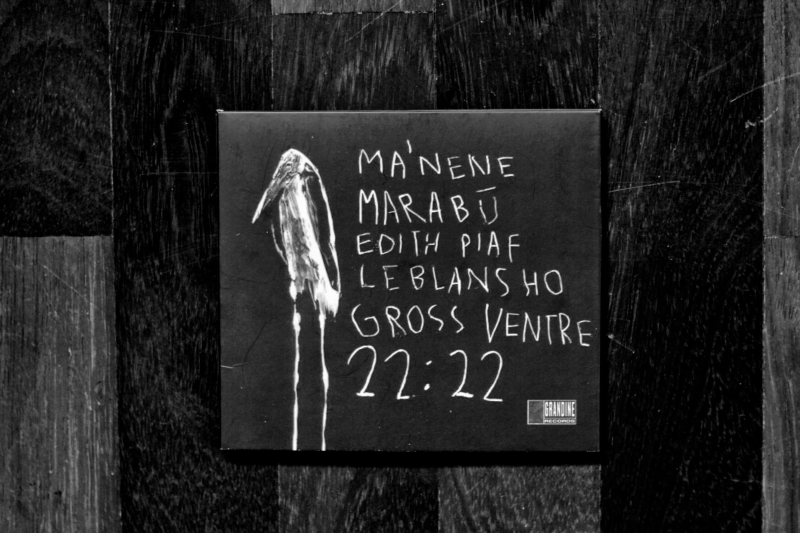 MA'NENE
MARABŪ
EDITH PIAF
LEBLANSHO
GROSS VENTRE
22:22
GRANDINE
RECORDS